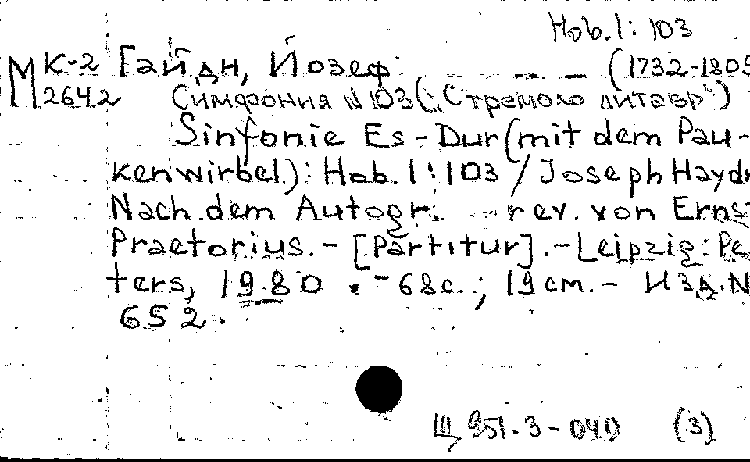 Hob. I: 103
М К-2 Гайдн, Йозеф (1732-1809
2642 Симфония N 103 („С тремоло литавр“)
Sinfonie Es-Dur (mit dem Pau-
kenwirbel): Hob. I:103 / Joseph Haydn
Nach dem Autogr. rev. von Ernst
Praetorius. - [Partitur]. - Leipzig: Pe-
ters, 1980. - 68c.; 19 cm. - Изд. N
652.
Щ 951-3-049 (3)